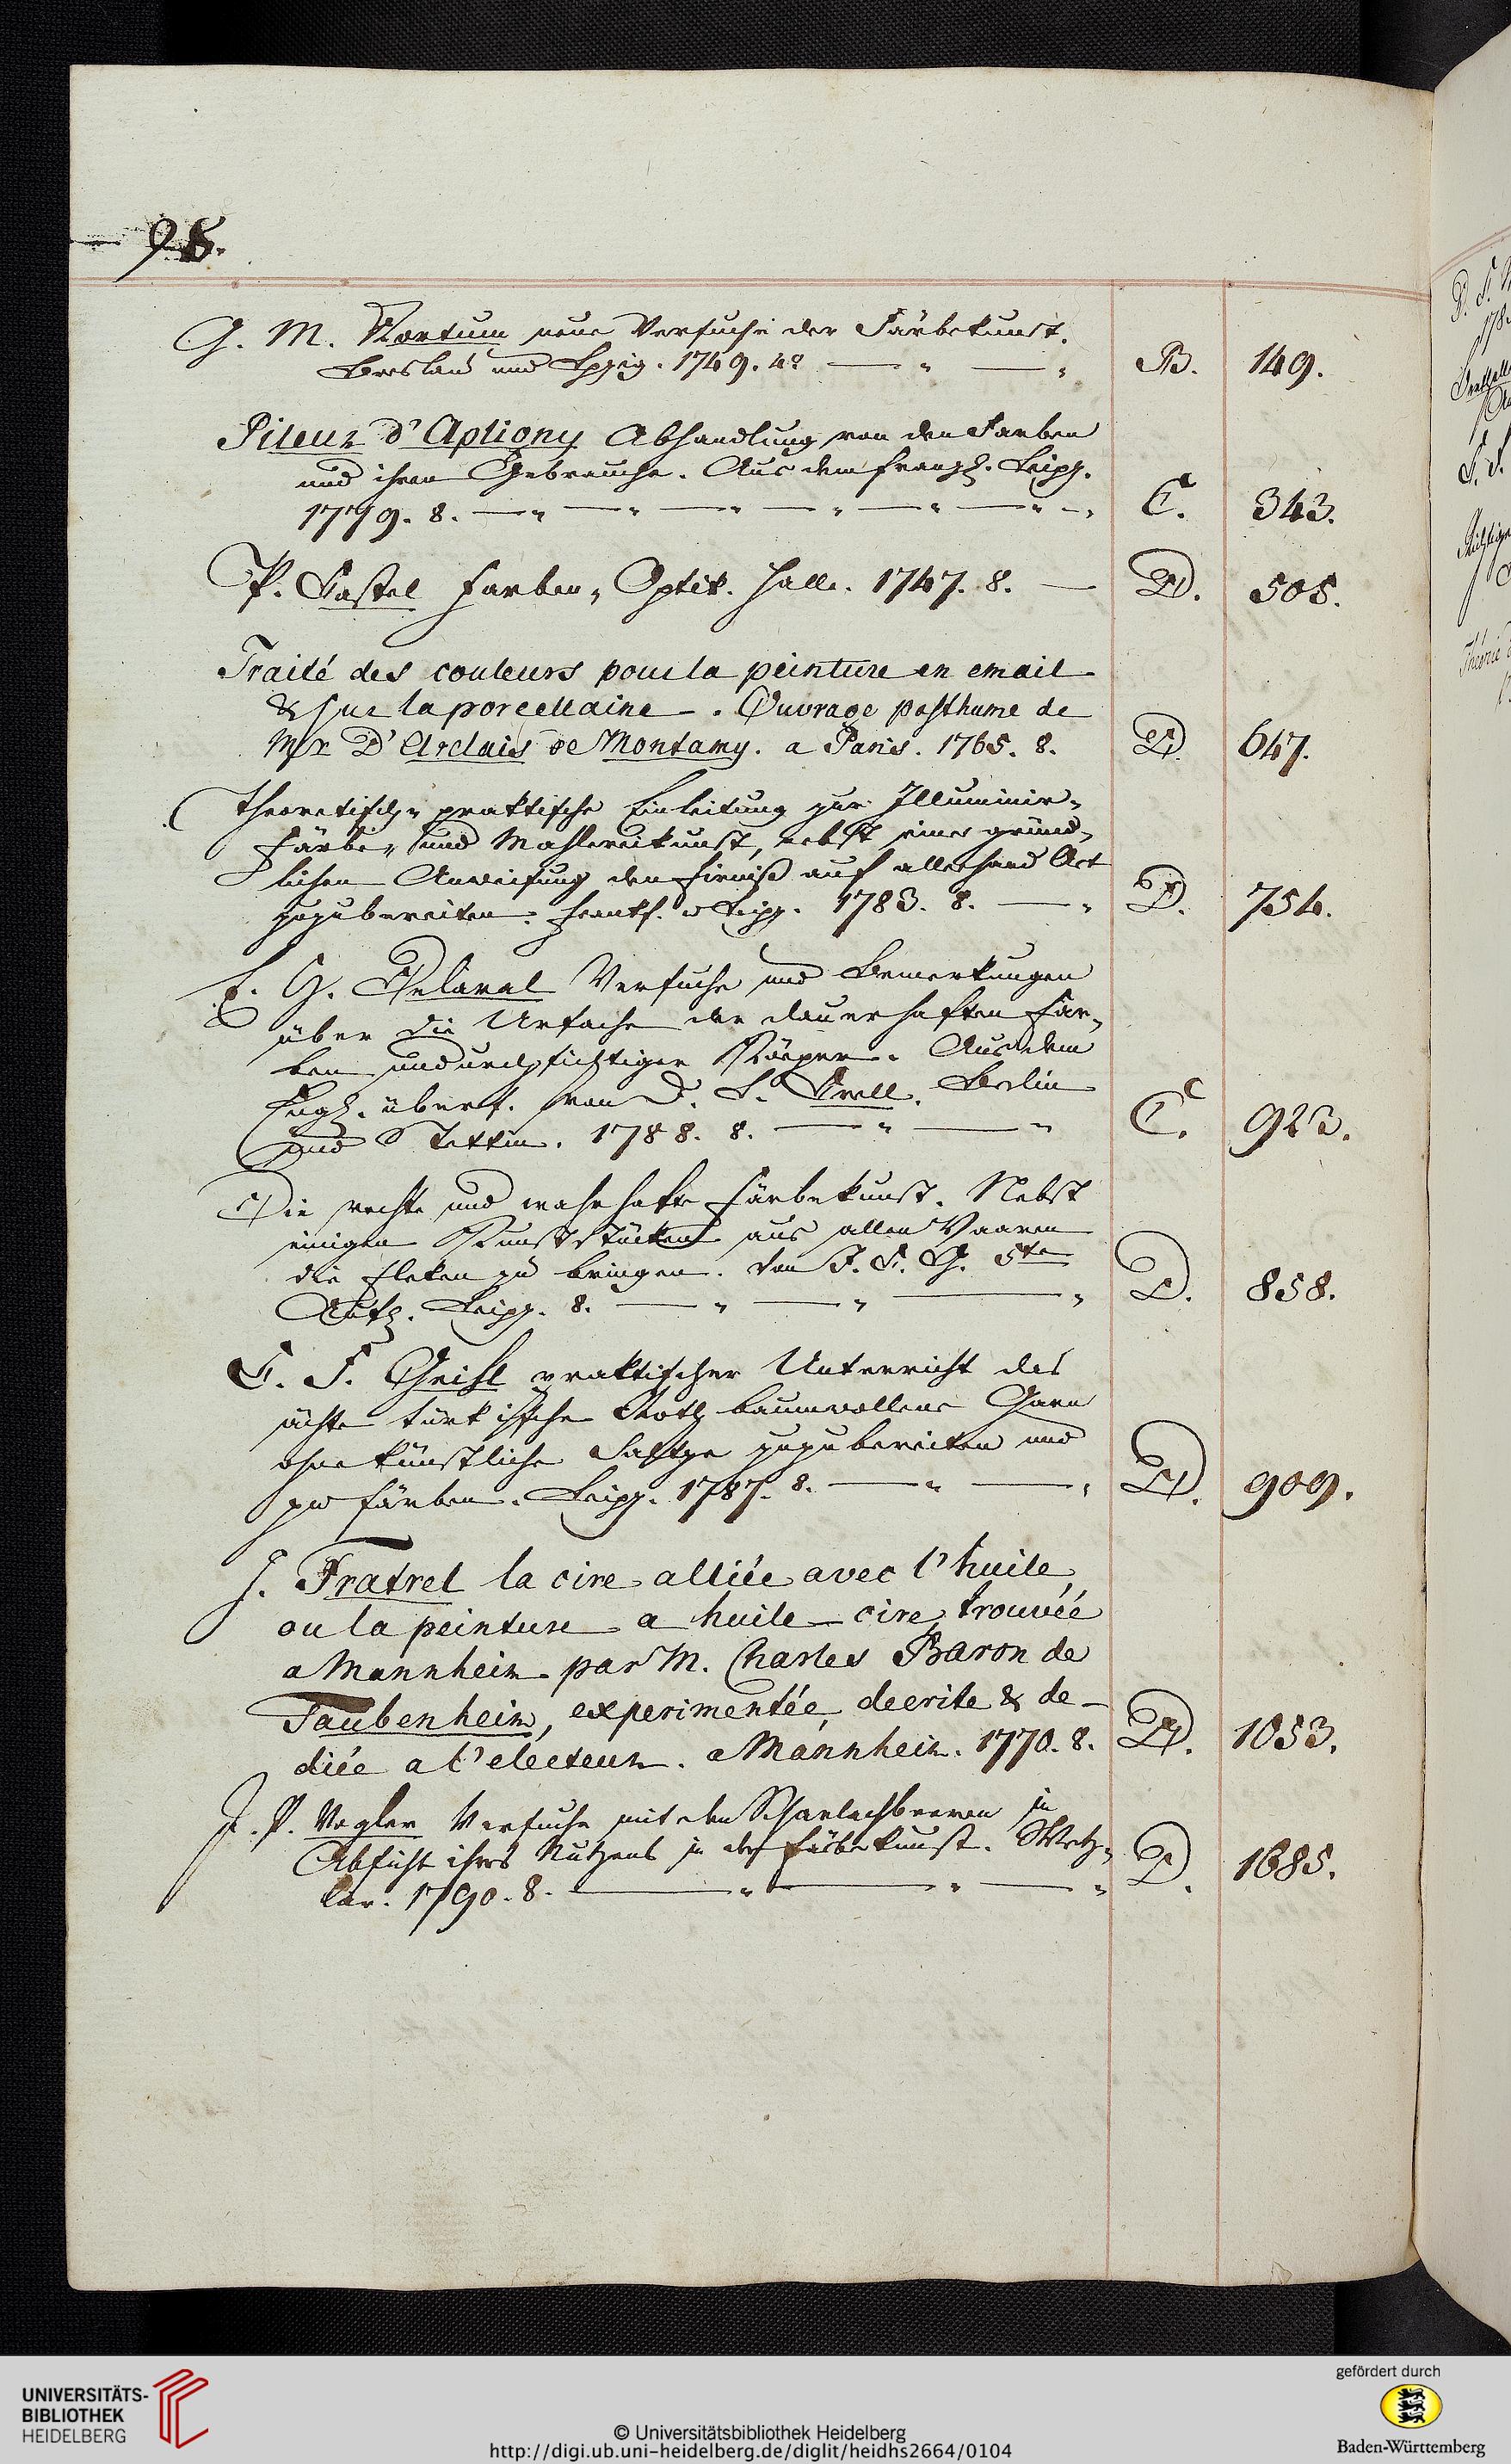 98.
G. M. Kortum neue Versuche der Färbekunst.
Breslau und Lpzig. 1749. 4º — " — " B. 149.
Pileur d'Apligny Abhandlung von den Farben
und ihrem Gebrauche. Aus dem franz. Leipz.
1779. 8. — " — " — " — " — " — " — " C. 343.
P. Castel Farben-Optik. Halle. 1747. 8. — D. 505.
Traité des couleurs pour la peinture en email
& sur la porcellaine —. Ouvrage posthume de
Mr. D'Arclais de Montamy. a Paris. 1765. 8. D. 647.
Theoretisch-praktische Einleitung zur Illuminir-
Färbe- und Mahlereikunst, nebst einer gründ-
lichen Anweisung den Firniß auf allerhand Art
zuzubereiten. Frankf. u Leipz. 1783. 8. — " D. 754.
E. H. Delaval Versuche und Bemerkungen
über die Ursache der dauerhaften Far-
ben undurchsichtiger Körper. Aus dem
Engl. übers. von D. L. Crell. Berlin
und Stettin. 1788. 8. — " — " C. 923.
Die rechte und wahrhafte Färbekunst. Nebst
einigen Kunststücken aus allen Waaren
die Fleken zu bringen. Von J. F. G. 5te
Aufl. Leipz. 8. — " — " — " D. 858.
C. F. Geißl praktischer Unterricht das
ächte türkische Roth baumwollene Garn
ohne künstliche Saltze zuzubereiten und
zu färben. Leipz. 1787. 8. — " — " D. 909.
J. Fratrel la cire alliée avec l'huile,
ou la peinture a huile-cire trouvée
a Mannheim par M. Charles Baron de
Taubenheim, experimentée, decrite & de-
diée a l'electeur. a Mannheim. 1770. 8. D. 1053.
J. P. Vogler Versuche mit den Scharlachbeeren in
Absicht ihres Nutzens in der Färbekunst. Wetz-
lar. 1790. 8. — " — " — " D. 1685.
UNIVERSITÄTS-
BIBLIOTHEK
HEIDELBERG
© Universitätsbibliothek Heidelberg
http://digi.ub.uni-heidelberg.de/diglit/heidhs2664/0104
gefördert durch
Baden-Württemberg